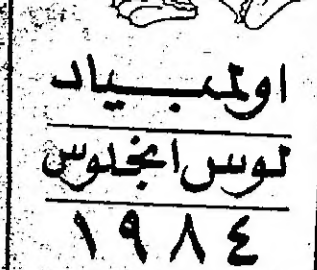 اولمبياد
لوس انجلوس
١٩٨٤